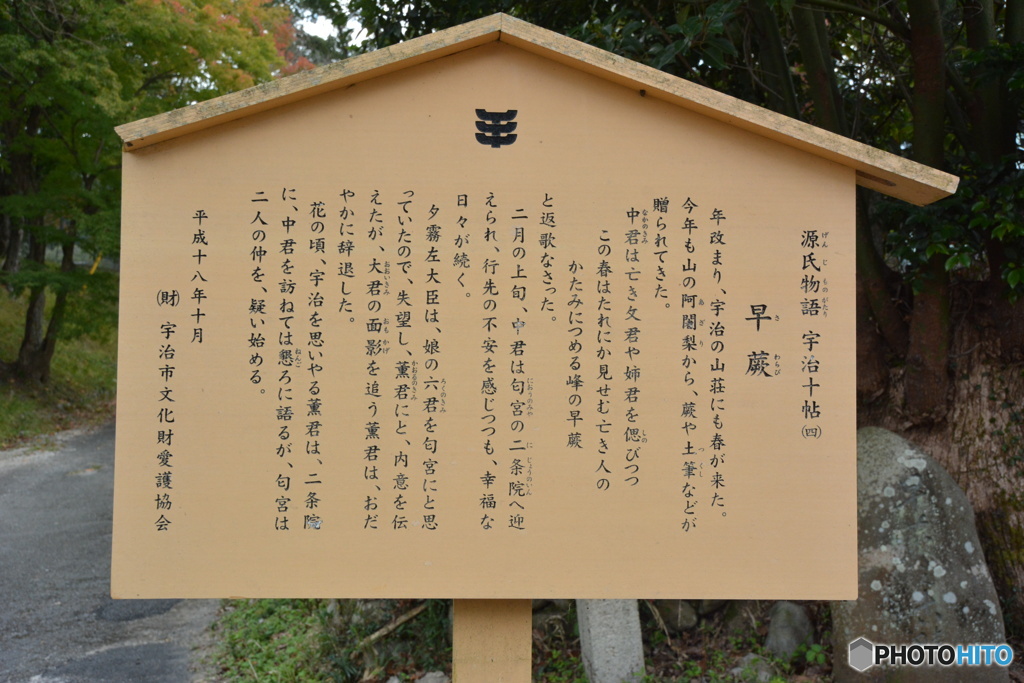 源氏物語 宇治十帖(四)
早蕨
年改まり、宇治の山荘にも春が来た。
今年も山の阿闍梨から、蕨や土筆などが
贈られてきた。
中君は亡き父君や姉君を偲びつつ
この春はたれにか見せむ亡き人の
かたみにつめる峰の早蕨
と返歌なさった。
二月の上旬、中君は匂宮の二条院へ迎
えられ、行先の不安を感じつつも、幸福な
日々が続く。
夕霧左大臣は、娘の六君を匂宮にと思
っていたので、失望し、薫君にと、内意を伝
えたが、大君の面影を追う薫君は、おだ
やかに辞退した。
花の頃、宇治を思いやる薫君は、二条院
に、中君を訪ねては懇ろに語るが、匂宮は
二人の仲を、疑い始める。
平成十八年十月
(財) 宇治市文化財愛護協会
PHOTOHITO